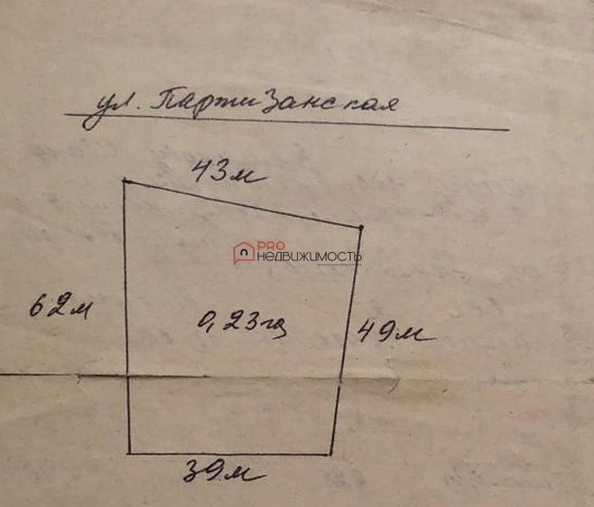 ул. Партизанская
43м
PRO
НЕДВИЖИМОСТЬ
62м
0,23га
49м
39м